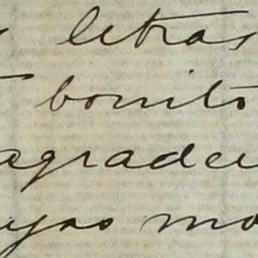 letras
bonito
agrade
yas mo